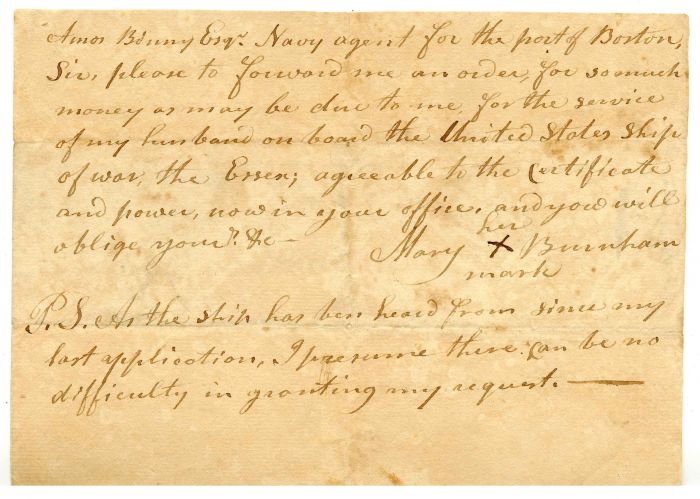 Amos Binny Esqr. Navy agent for the port of Boston,
Sir, please to forward me an order, for so much
money as may be due to me for the service
of my husband on board the United States ship
of war, the Essex; agreeable to the Certificate
and power, now in your office, and you will
oblige yours. &c —
her
Mary X Burnham
mark
P.S. As the ship has ben heard from since my
last application, I presume there can be no
difficulty in granting my request. —